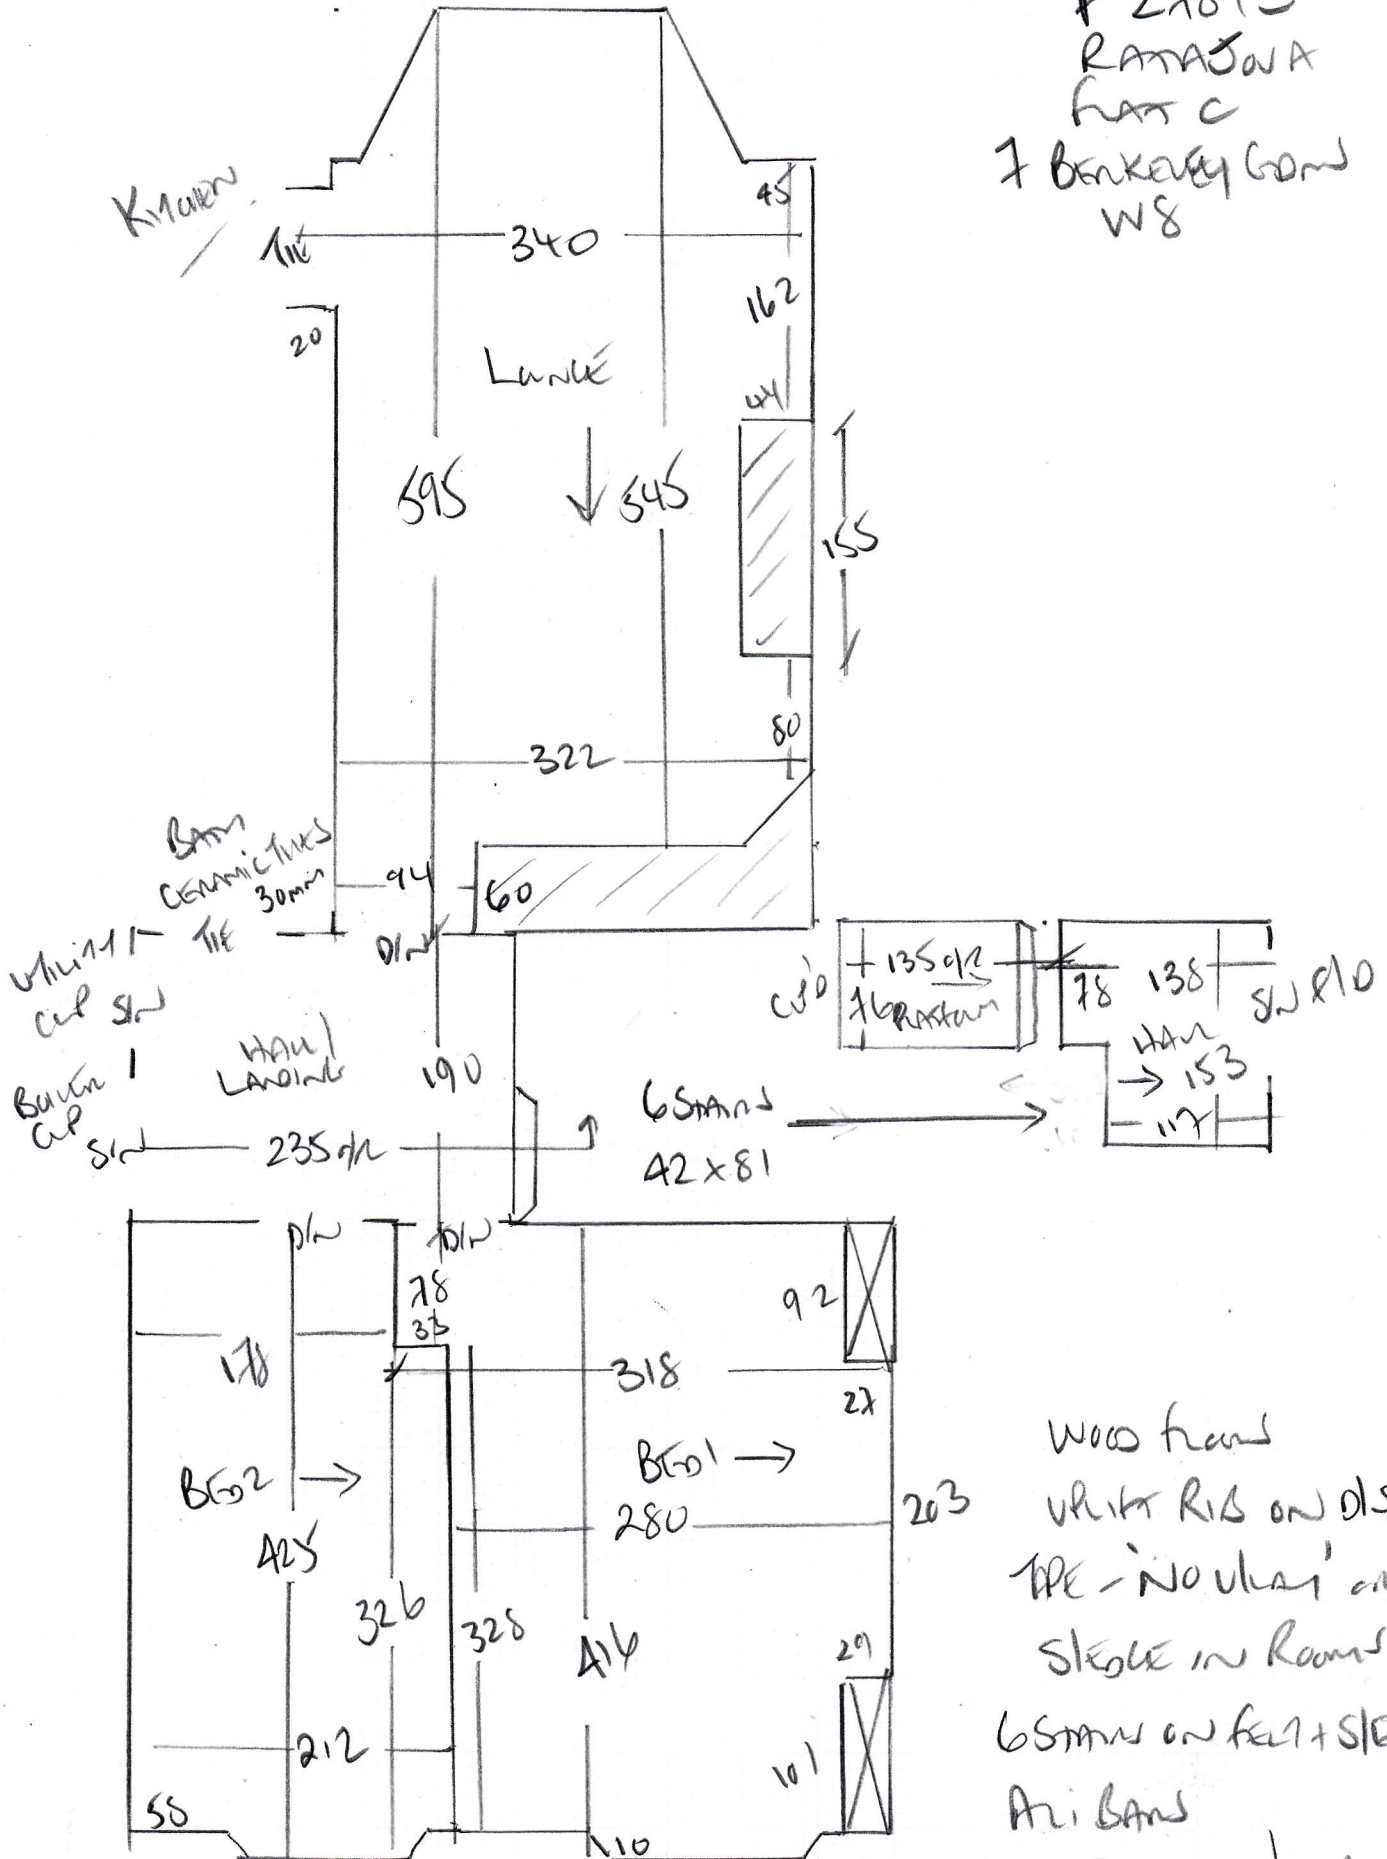 RATAJOVA
FLAT C
7 BERKELEY GDNS
W8
KITCHEN
TILE
340
45
162
20
LOUNGE
44
595
545
155
80
322
BATH
CERAMIC TILES
30mm
TILE
94
60
D/N
UTILITY
CUP S/N
BOILER
CUP
S/N
HALL/
LANDING
190
235 O/R
6 STAIRS
42 x 81
CUP'D
135 O/R
76 PLATFORM
78
138
S/N F/D
HALL
153
117
D/N
D/N
78
33
178
318
92
27
BED 2
BED 1
280
203
425
326
328
416
29
212
101
50
10
WOOD FLOORS
UPLIFT RIB ON D/S
TAPE - 'NO
SLEDGE IN ROOMS
6 STAIRS ON FELT + SLE
ALI BARS